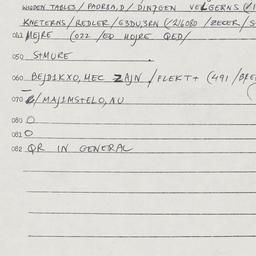 WIDDEN TABLES / PADREA, D / DINZOEN VELGERNS
KAETERNS / REDLER / G3DU, 3RN (/ 216080 / ZECER / S
042 MEJRE (022 /ED HOJRE QED/
050 STMURE
060 BEJD1KXO, MEC ZAJN / FLEKT+ (491 /BRE
070 / MAJ1MSTELO, NU
080 O
081 O
082 QR IN GENERAL